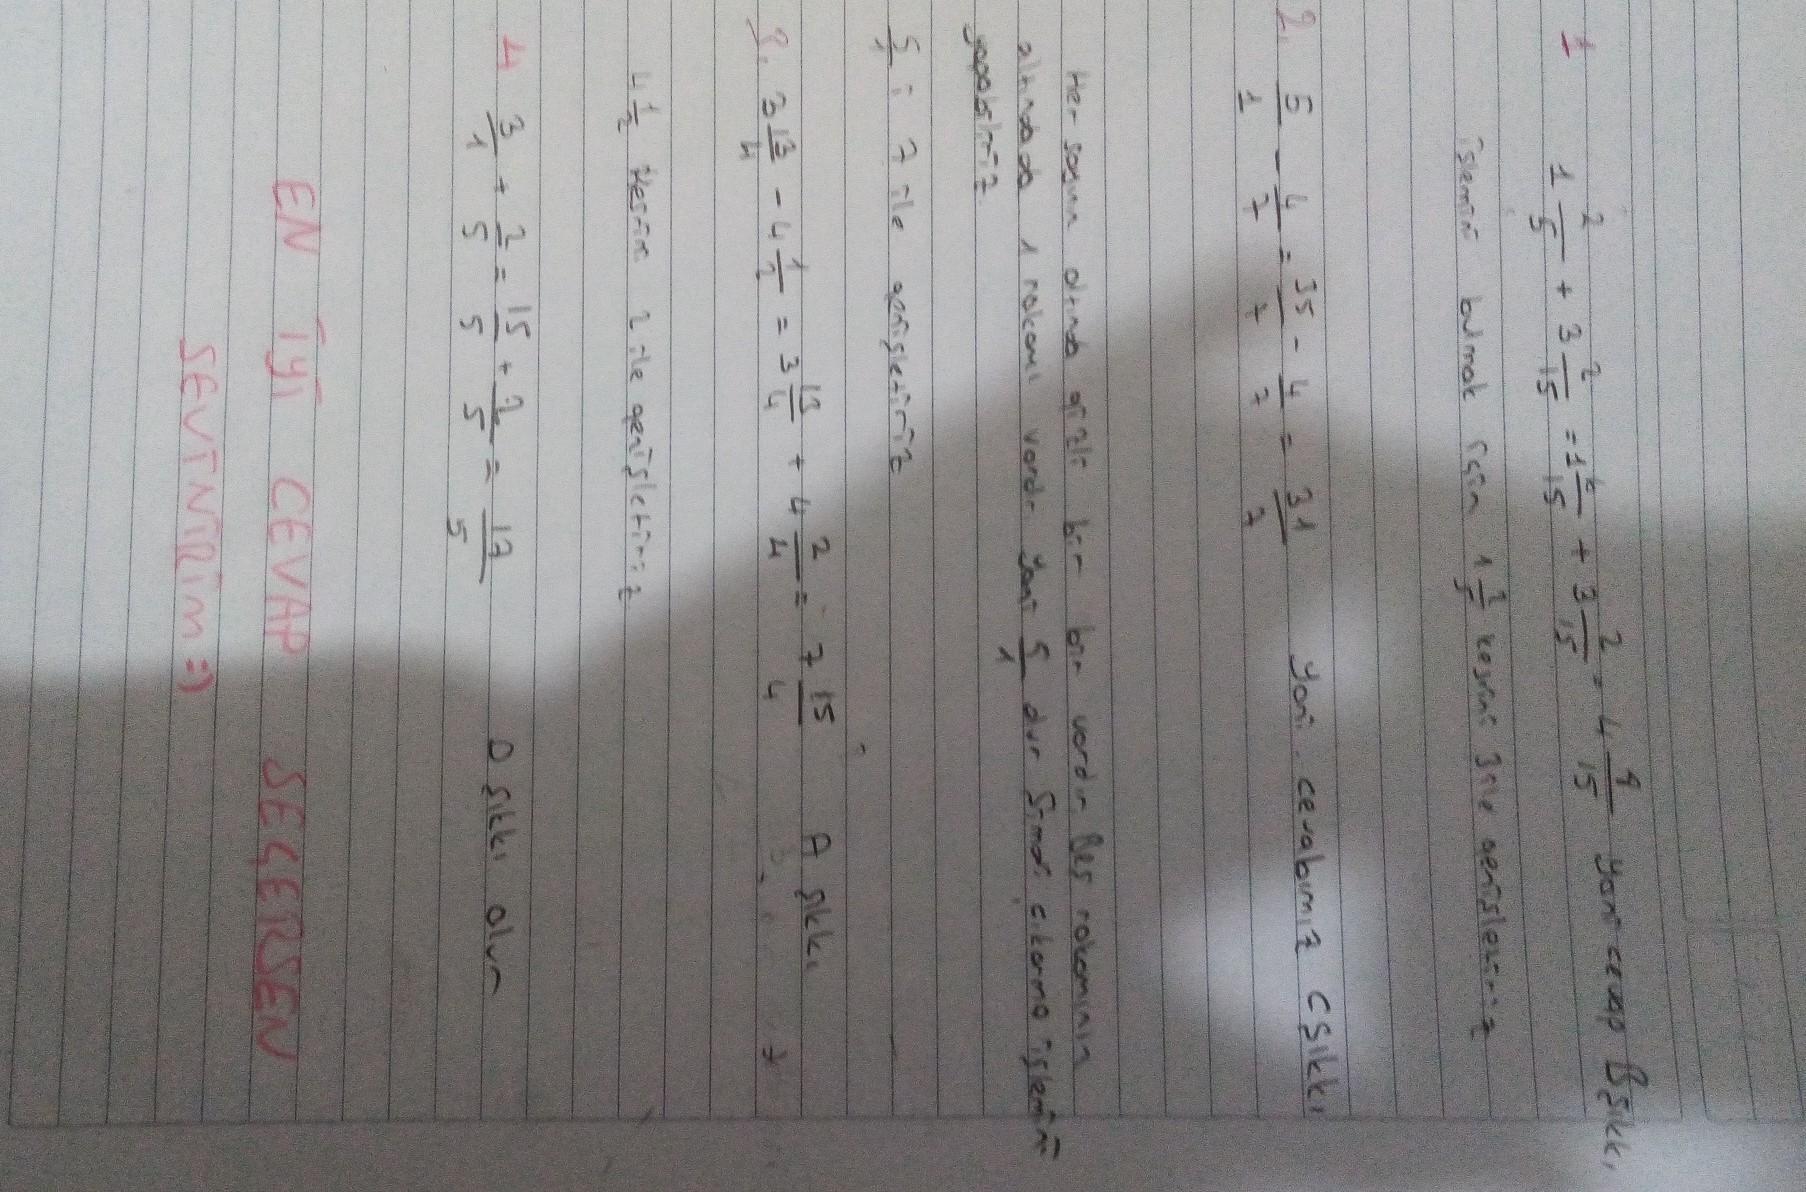 1 1 2/5 + 3 2/15 = 1 6/15 + 3 2/15 = 4 9/15 yani cevap B şıkkı
işlemin bulmak için 1 2/5 kesrini 3 ile genişletiriz
2. 5/1 - 4/7 = 35/7 - 4/7 = 31/7 yani cevabımız C şıkkı
Her sayının altında gizli bir bir vardır Beş rakamının
altında da 1 rakamı vardır yani 5/1 dir Şimdi çıkarma işlemini
yapabiliriz
5/1 i 7 ile genişletiriz
3. 3 13/4 - 4 1/2 = 3 13/4 + 4 2/4 = 7 15/4 A şıkkı
4 1/2 kesrini 2 ile genişletiriz
4 3/1 + 2/5 = 15/5 + 2/5 = 17/5 D şıkkı olur
EN İYİ CEVAP SEÇERSEN
SEVİNİRİm =)